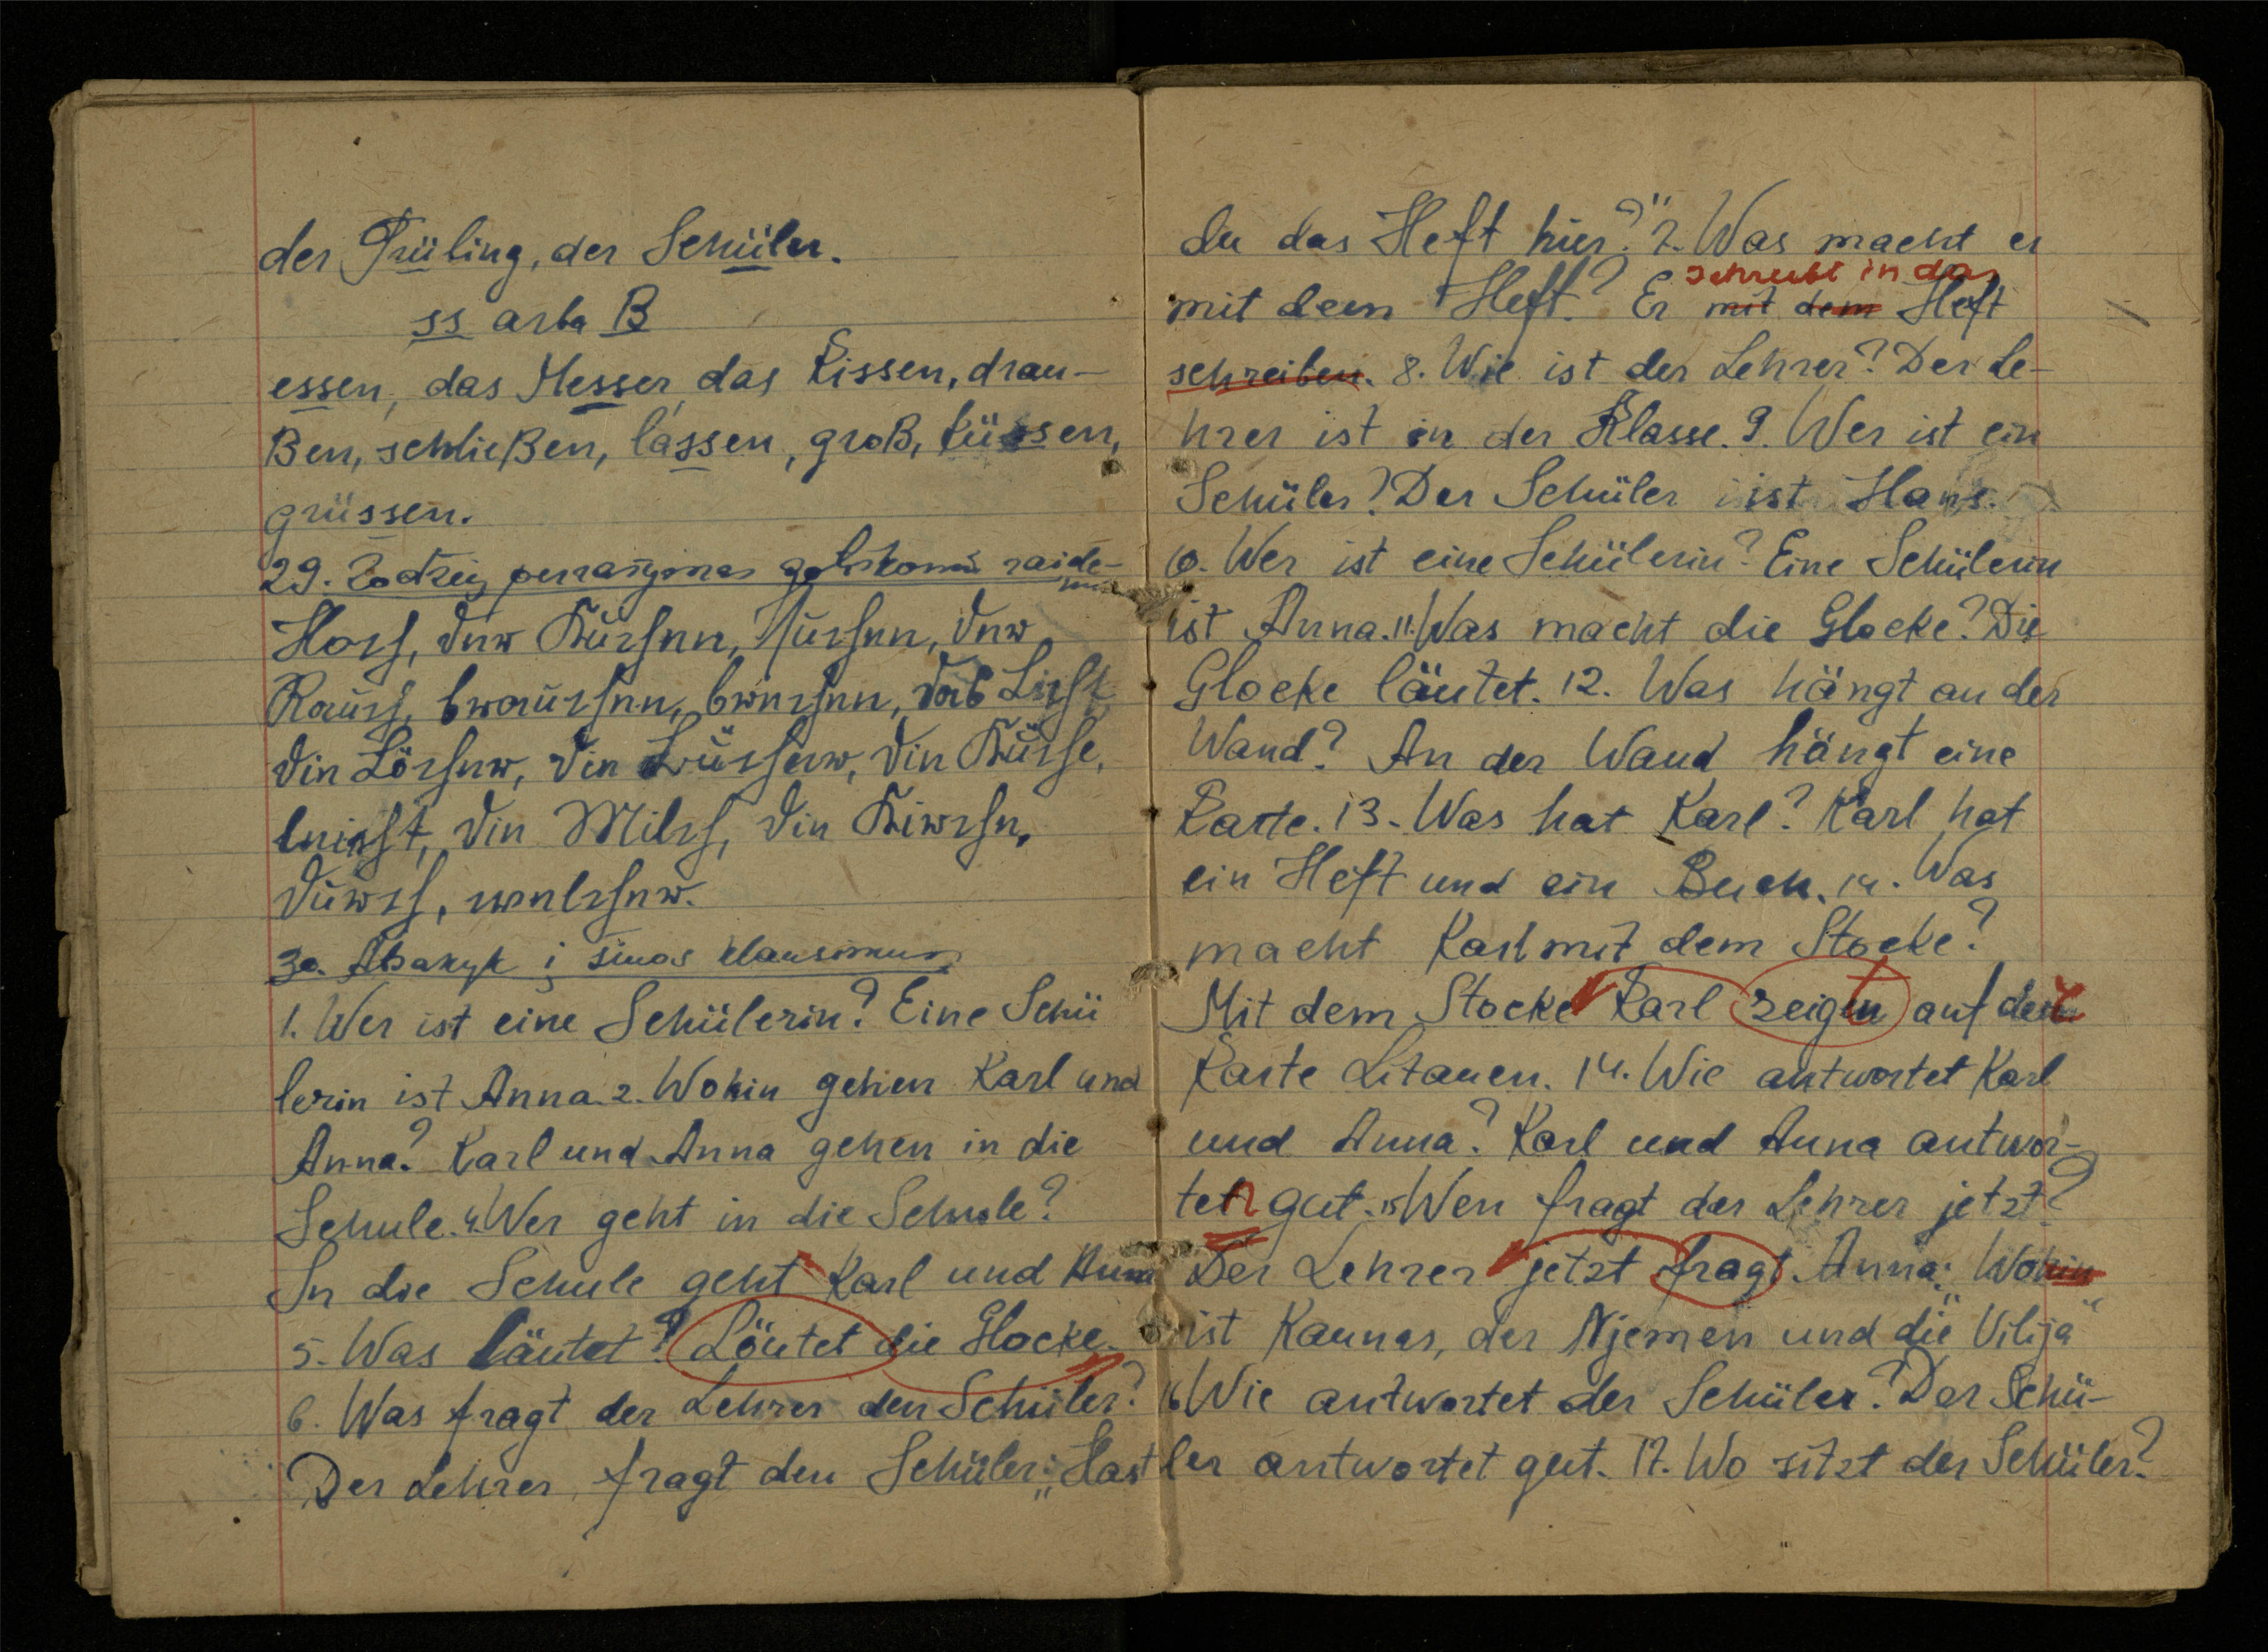 der Früling, der Schüler.
ss arba ß
essen, das Messer, das Kissen, drau-
ßen, schließen, lassen, groß, küssen,
grüssen.
29. Žodžių perrašymas gotiškomis raidė-
mis
Hoch, der Kuchen, suchen, der
Rauch, brauchen, brechen, das Licht
die Löcher, die Bücher, die Küche,
leicht, die Milch, die Kirche,
durch, welcher.
30. Atsakyk į šiuos klausimus
1. Wer ist eine Schülerin? Eine Schü
lerin ist Anna. 2. Wohin gehen Karl und
Anna? Karl und Anna gehen in die
Schule. 4. Wer geht in die Schule?
In die Schule geht Karl und Anna
5. Was läutet? Läutet die Glocke.
6. Was fragt der Lehrer den Schüler?
Der Lehrer fragt den Schüler: „Hast
du das Heft hier?" 7. Was macht er
schreibt in das
mit dem Heft? Er mit dem Heft
schreiben. 8. Wie ist der Lehrer? Der Le-
hrer ist in der Klasse. 9. Wer ist ein
Schüler? Der Schüler ist Hans.
10. Wer ist eine Schülerin? Eine Schülerin
ist Anna. 11. Was macht die Glocke? Die
Glocke läutet. 12. Was hängt an der
Wand? An der Wand hängt eine
Karte. 13. Was hat Karl? Karl hat
ein Heft und ein Buch. 14. Was
macht Karl mit dem Stocke?
Mit dem Stocke Karl zeigt auf der
Karte Litauen. 14. Wie antwortet Karl
und Anna? Karl und Anna antwor-
ten gut. 15 Wen fragt der Lehrer jetzt?
Der Lehrer jetzt fragt Anna: „Wohin
ist Kaunas, der Njemen und die Vilija"
16 Wie antwortet der Schüler? Der Schü-
ler antwortet gut. 17. Wo sitzt der Schüler?